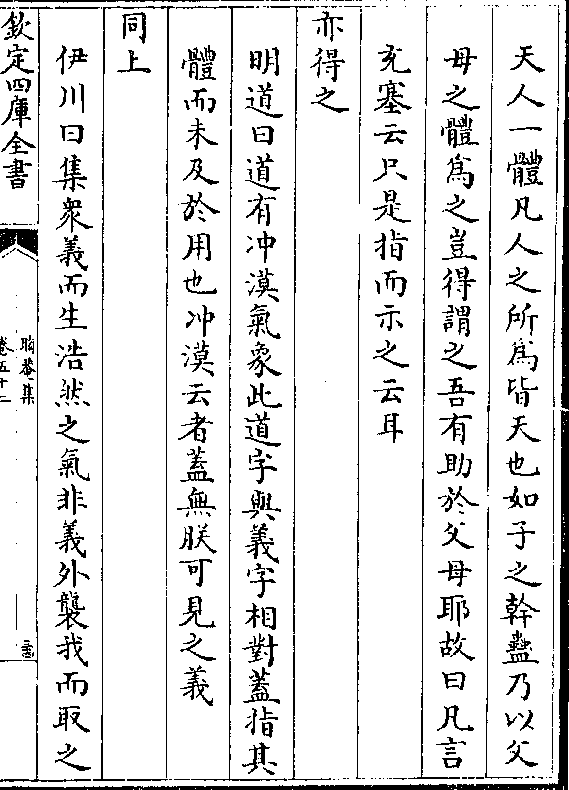 天人一體凡人之所爲皆天也如子之幹蠱乃以父
母之體爲之豈得謂之吾有助於父母耶故曰凡言
充塞云只是指而示之云耳
亦得之
明道曰道有冲漠氣象此道字與義字相對蓋指其
體而未及於用也冲漠云者蓋無朕可見之義
同上
伊川曰集衆義而生浩然之氣非義外襲我而取之
欽定四庫全書
卷五十二